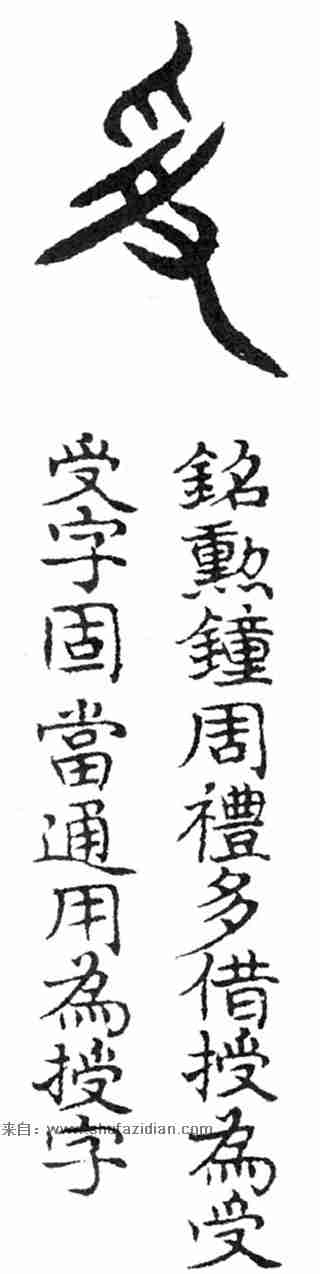 受
銘勲鐘周禮多借授為受
受字固當通用為授字
来自：www.shufazidian.com